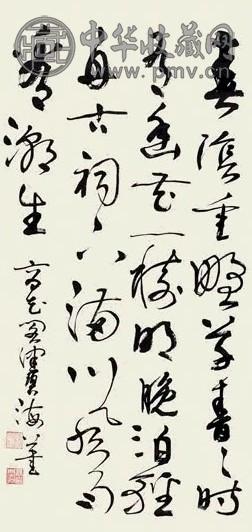 中华收藏网
www.pmv.cn
春陰垂野草青々時
有幽花一樹明晚泊孤
舟古祠下滿川風雨
看潮生
海